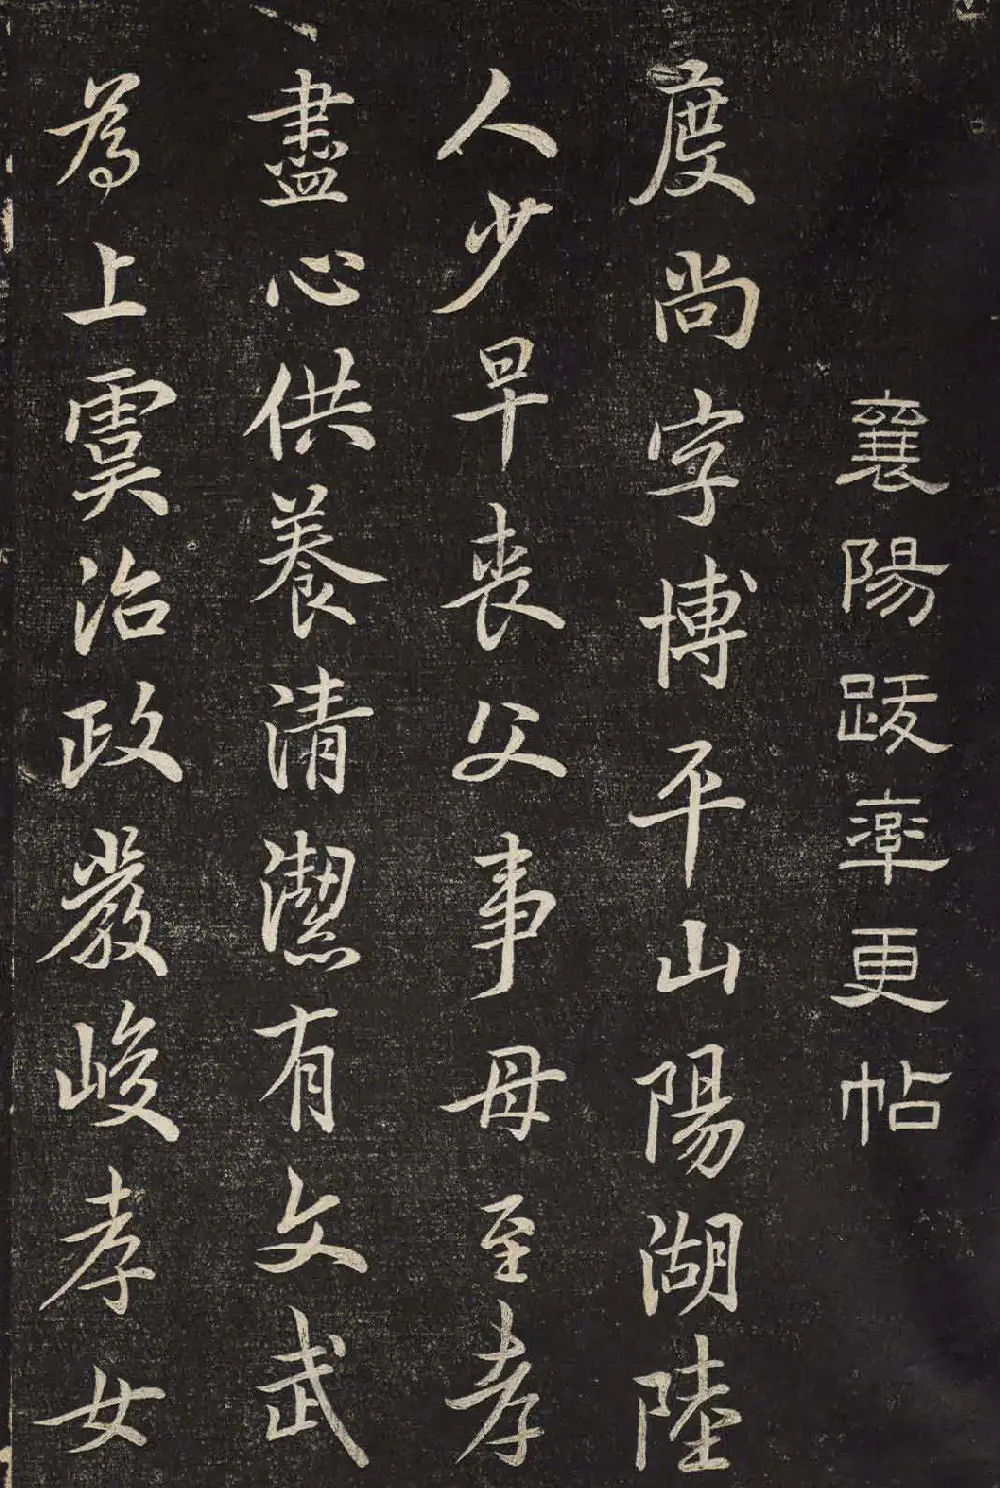 襄陽跋率更帖
度尚字博平山陽湖陸
人少早喪父事母至孝
盡心供養清潔有文武
為上虞治政嚴峻孝女